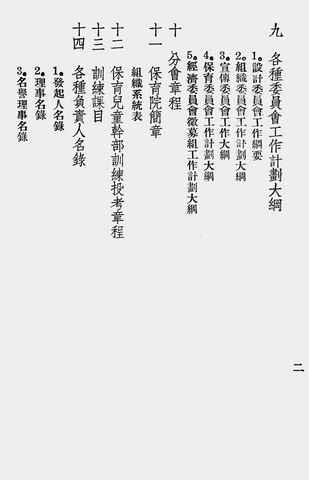 九　各種委員會工作計劃大綱
1.設計委員會工作綱要
2.組織委員會工作計劃大綱
3.宣傳委員會工作大綱
4.保育委員會工作計劃大綱
5.經濟委員會徵募組工作計劃大綱
十　分會章程
十一　保育院簡章
組織系統表
十二　保育兒童幹部訓練投考章程
十三　訓練課目
十四　各種負責人名錄
1.發起人名錄
2.理事名錄
3.名譽理事名錄
二